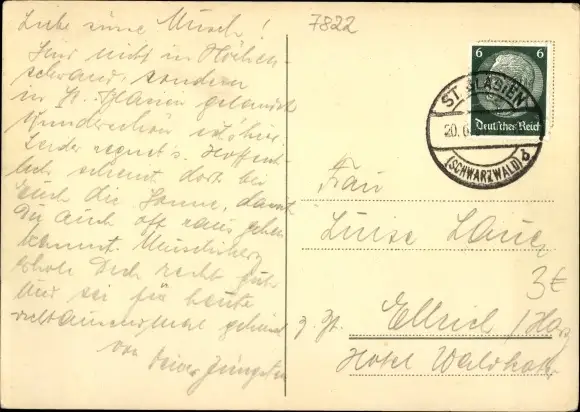 7822
Liebe
Sind nicht in Höchen-
schwand, sondern
in St. Blasien gelandet
Wunderschön ist's hier
Leider regnet's. Hoffent-
lich scheint dort bei
Euch die Sonne, damit
Du auch oft raus gehen
kannst.
erhole Dich recht gut
und sei für heute
von Deiner Jüngsten
6 6
Deutsches Reich
ST. BLASIEN
20.
(SCHWARZWALD) b
Frau
Luise
3€
z. Zt. Ellrich / Harz
Hotel